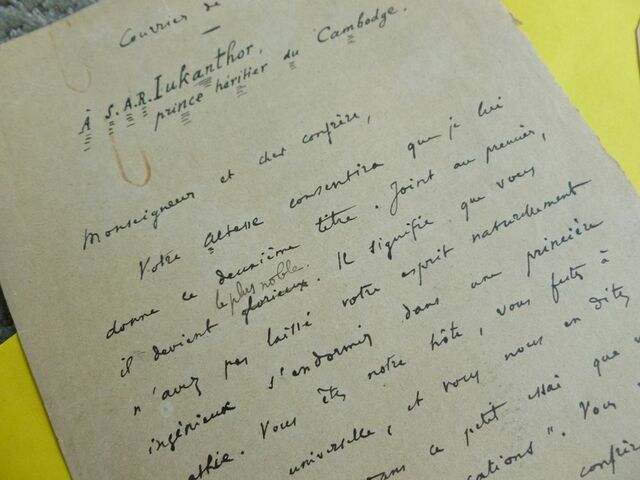 Courrier de
À S.A.R. Iukanthor,
prince héritier du Cambodge.
Monseigneur et cher confrère,
Votre Altesse consentira que je lui
donne ce deuxième titre. Joint au premier,
il devient glorieux. Il signifie que vous
le plus noble
n'avez pas laissé votre esprit naturellement
ingénieux s'endormir dans une princière
Vous êtes notre hôte, vous fûtes à
universelle, et vous nous en dites
dans ce petit essai que v
cations". Vous
confrè